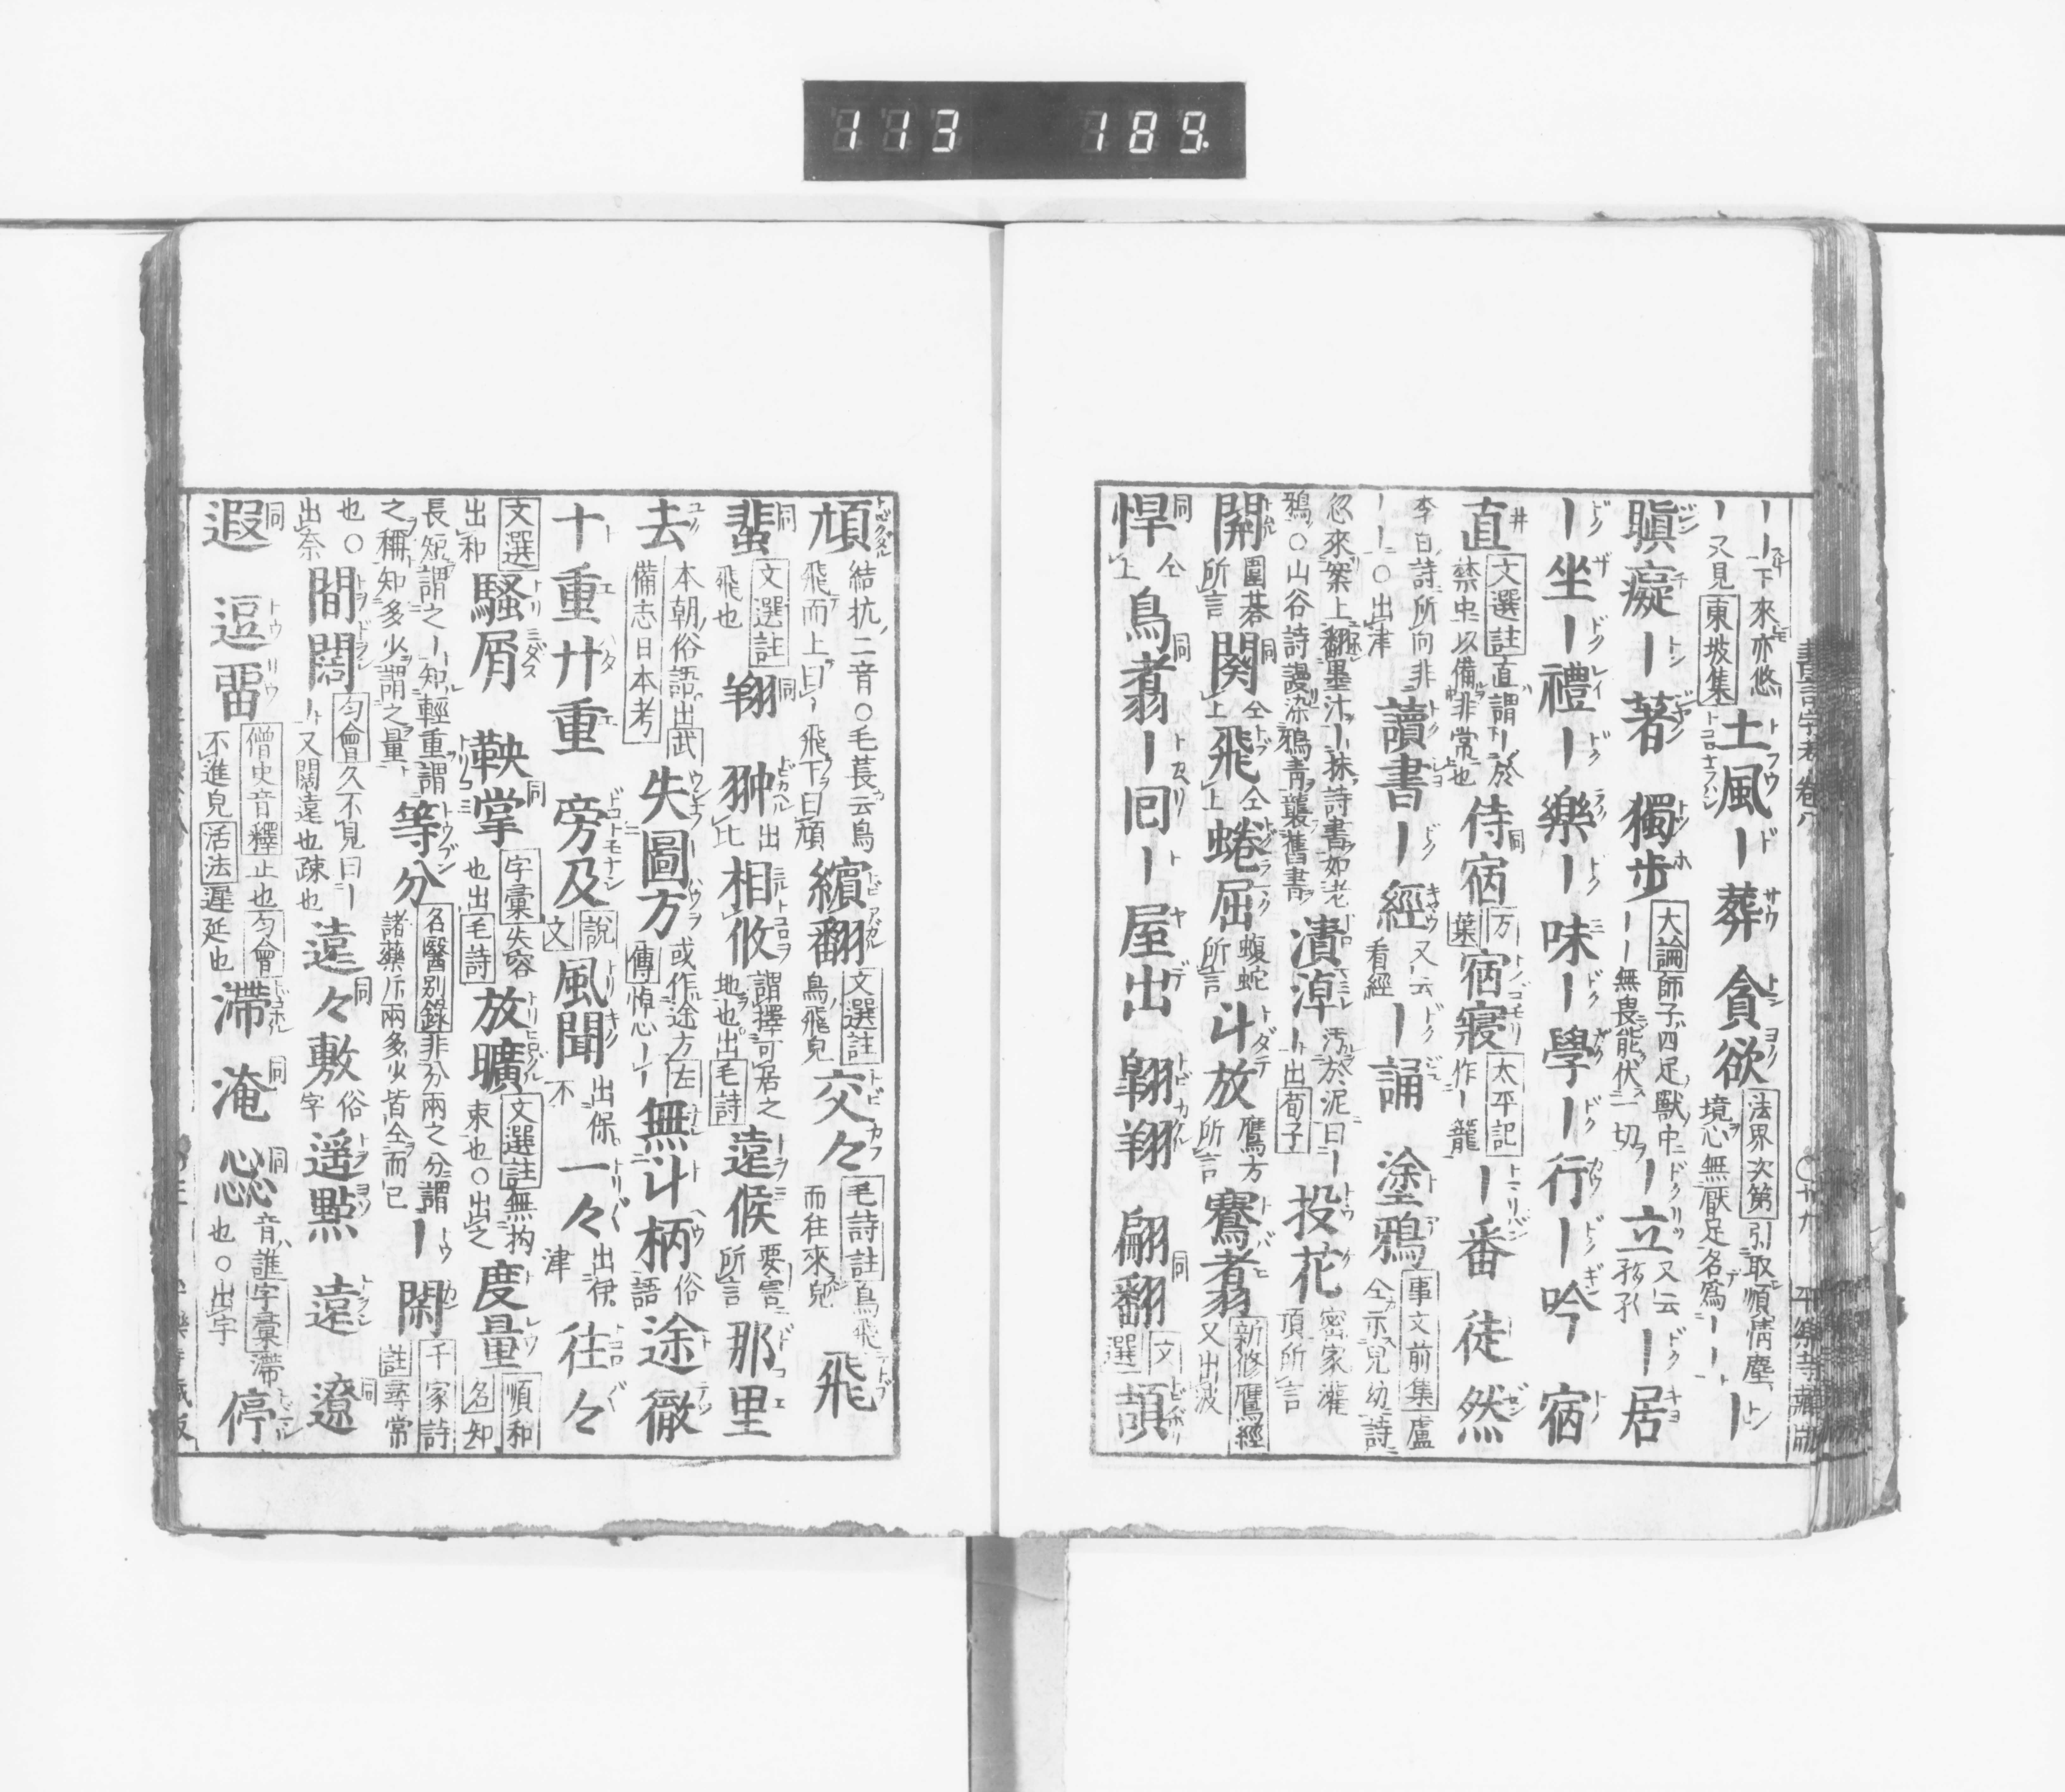 113 189.
ー下來亦悠ー又見東坡集 土風ー葬 貪欲 法界次第引取順情塵境心無厭足名為ーー ー
瞋癡ー著 獨步 大論師子四足獸中ーー無畏能伏一切 ー立 又云孤孑 ー居
ー坐ー禮ー樂ー味ー學ー行ー吟 宿
直 文選註直謂ー於禁中以備非常也 侍宿 万葉 宿寢 太平記作ー龍 ー番 徒然
李白詩所向非ーー○出津 讀書ー經 又云看經 ー誦 塗鴉 事文前集盧仝示兒幼詩
忽來案上翻墨汁ー抹詩書如老鴉○山谷詩謾染鴉青襲舊書 漬淖 汚於泥曰ーー出荀子 投花 密家灌頂所言
開 圍碁所言 関 仝上 飛 仝上 蜷屈 蝮蛇所言 斗放 鷹方所言 騫翥 新修鷹經又出波
悍 仝上 鳥翥ー回ー屋出 翺翔 翩翻 文選 頡
頏 結抗二音○毛萇云鳥飛而上曰ー飛下曰頏 繽翻 文選註鳥飛皃 交々 毛詩註鳥飛而往來皃 飛
蜚 文選註飛也 翔 翀 出比 相攸 謂擇可居之地也出毛詩 遠候 要言所言 那里
去 本朝俗語出武備志日本考 失圖方 或作途方左傳悼心ー 無斗柄 俗語 途徹
十重廿重 旁及 說文 風聞 出保不 一々 出伊津 往々
文選出和 騷屑 鞅掌 字彙失容也出毛詩 放曠 文選註無拘束也○出之 度量 順和名知
長短謂之ー知輕重謂之稱知多少謂之量 等分 名醫別錄非分兩之分謂諸藥斤兩多少皆仝而已 ー閑 千家詩註尋常
也○出奈 間闊 匀會久不見曰ー又闊遠也疎也 遠々敷 俗字 遥點 遠 遼
遐 逗畱 僧史音釋止也匀會不進皃活法遲延也 滯 淹 惢 音誰字彙滯也○出宇 停